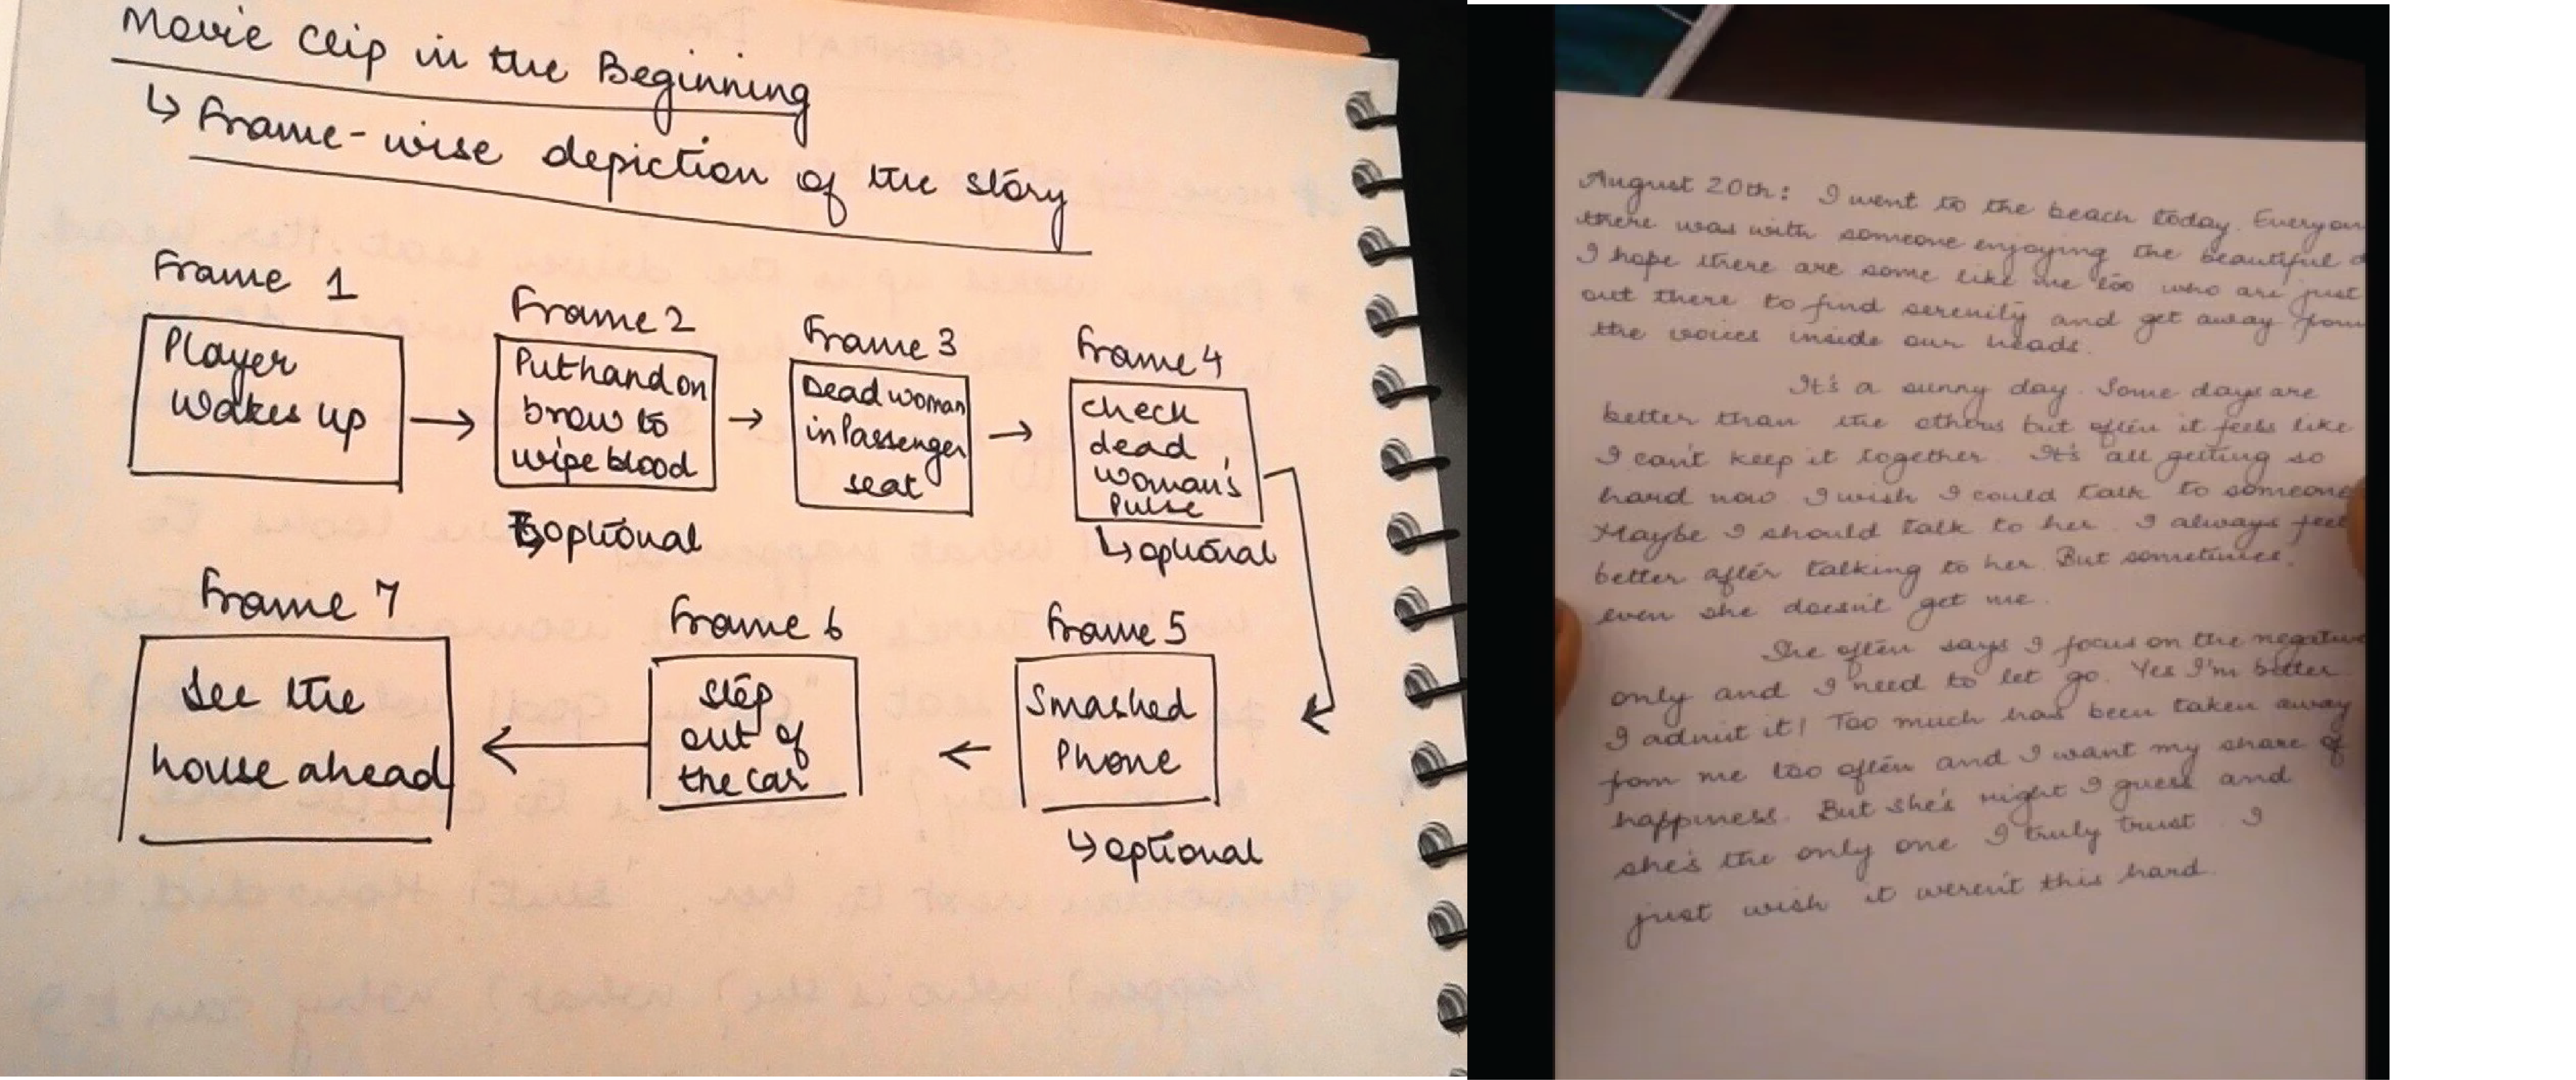 Movie Clip in the Beginning
↳ Frame-wise depiction of the story
Frame 1
Player
wakes up
Frame 2
Put hand on
brow to
wipe blood
↳ optional
Frame 3
Dead woman
in Passenger
seat
Frame 4
check
dead
woman's
Pulse
↳ optional
Frame 5
Smashed
Phone
↳ optional
Frame 6
Step
out of
the car
Frame 7
See the
house ahead
August 20th: I went to the beach today. Everyon
there was with someone enjoying the beautiful d
I hope there are some like me too who are just
out there to find serenity and get away from
the voices inside our heads.
It's a sunny day. Some days are
better than the others but often it feels like
I can't keep it together. It's all getting so
hard now. I wish I could talk to someone
Maybe I should talk to her. I always feel
better after talking to her. But sometimes,
even she doesn't get me.
She often says I focus on the negative
only and I need to let go. Yes I'm bitter
I admit it! Too much has been taken away
from me too often and I want my share of
happiness. But she's right I guess and
she's the only one I truly trust. I
just wish it weren't this hard.